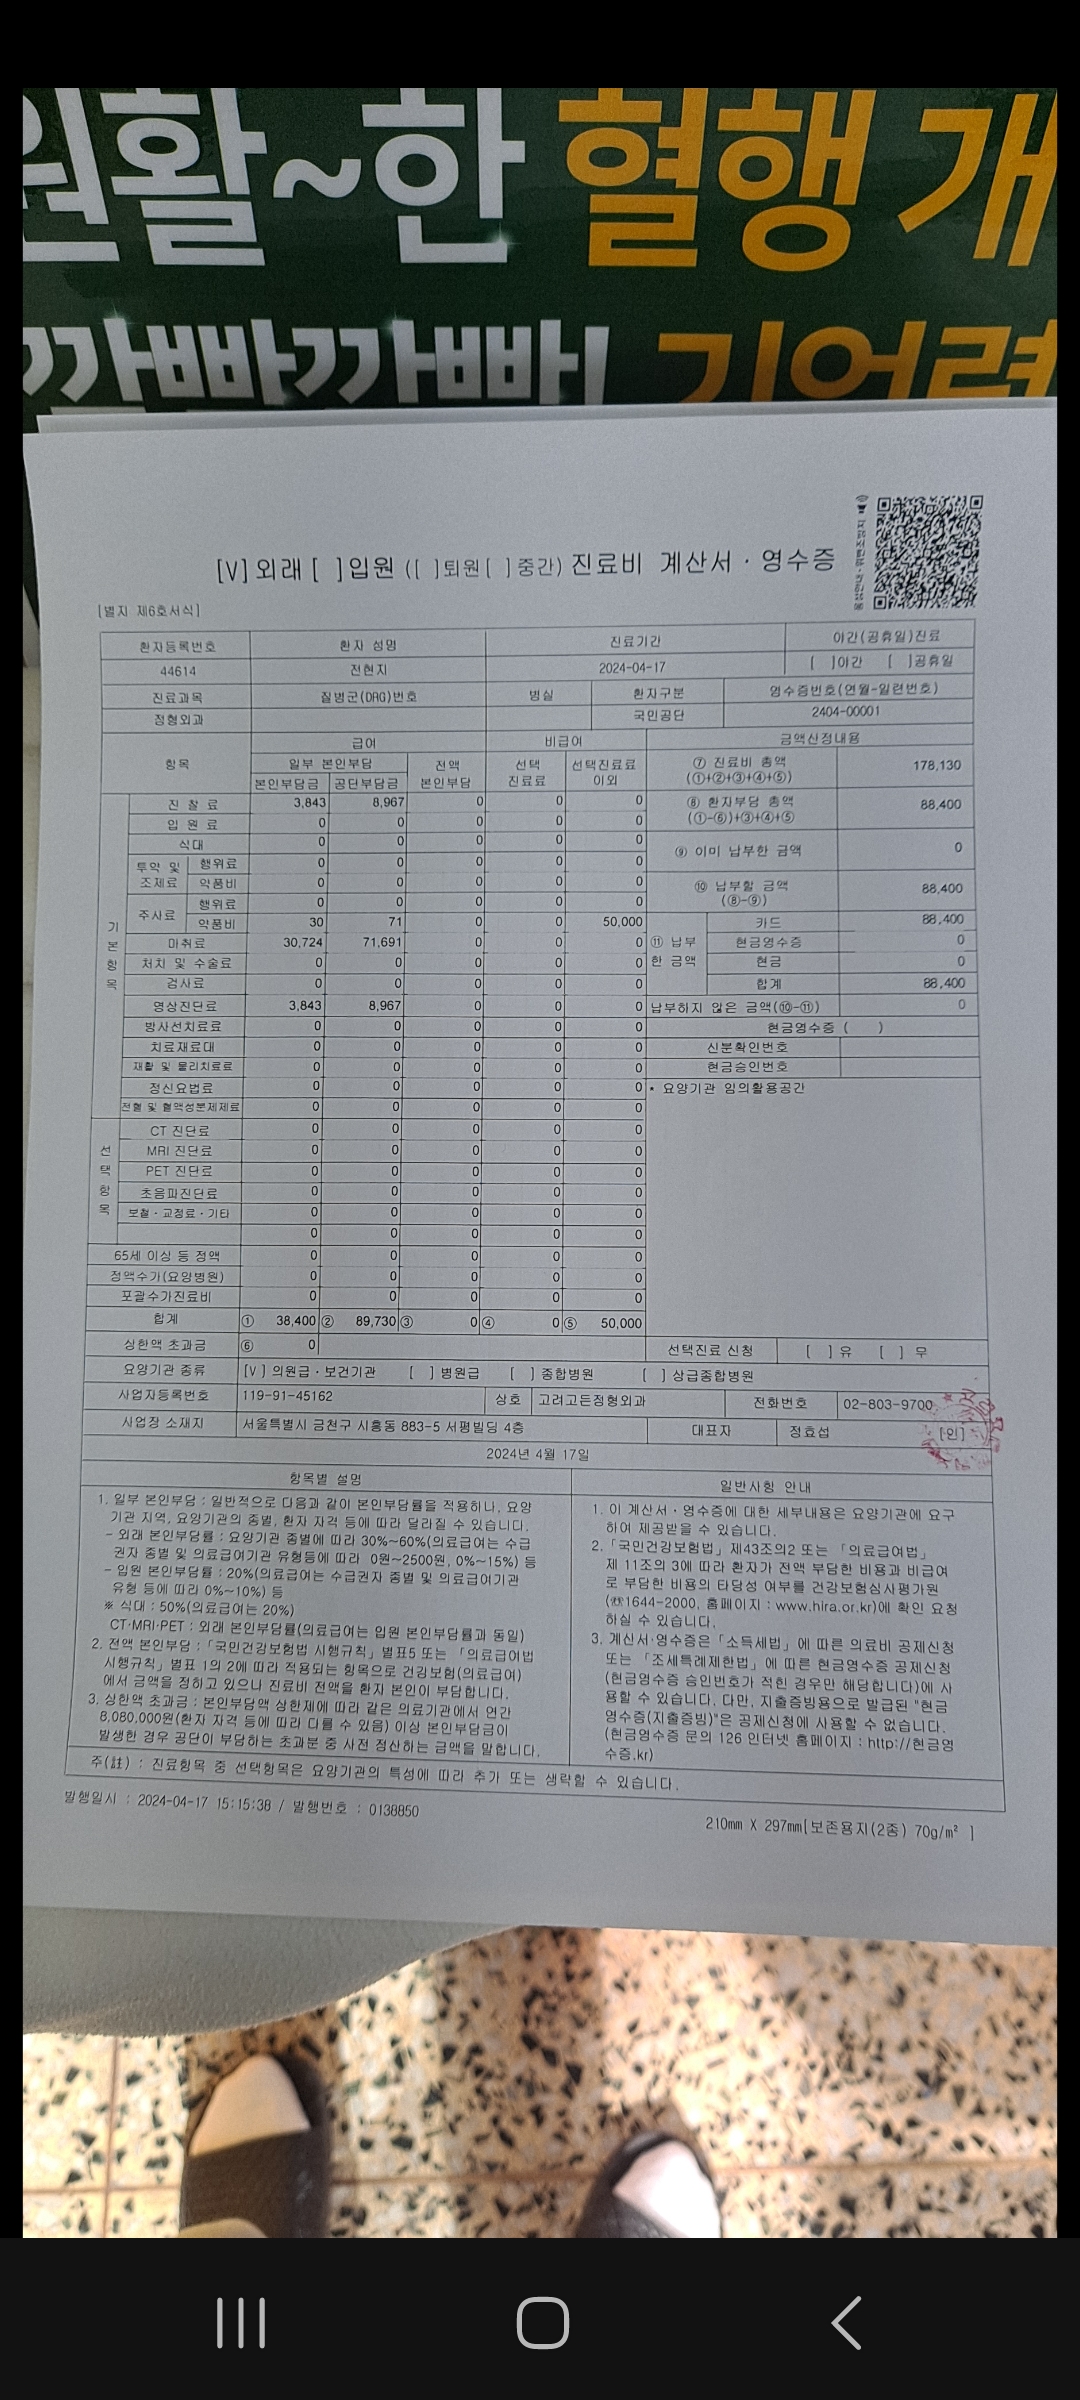 원활~한 혈행 개
깜빡깜빡! 기억력
[V]외래 [ ]입원 ([ ]퇴원[ ]중간) 진료비 계산서 · 영수증
[별지 제6호서식]
환자등록번호 환자 성명 진료기간 야간(공휴일)진료
44614 전현지 2024-04-17 [ ]야간 [ ]공휴일
진료과목 질병군(DRG)번호 병실 환자구분 영수증번호(연월-일련번호)
정형외과 국민공단 2404-00001
항목 급여 비급여 금액산정내용
일부 본인부담 전액 본인부담 선택 진료료 선택진료료 이외
본인부담금 공단부담금
⑦ 진료비 총액 (①+②+③+④+⑤) 178,130
진 찰 료 3,843 8,967 0 0 0
⑧ 환자부담 총액 (①-⑥)+③+④+⑤ 88,400
입 원 료 0 0 0 0 0
식대 0 0 0 0 0
⑨ 이미 납부한 금액 0
투약 및 조제료 행위료 0 0 0 0 0
약품비 0 0 0 0 0
⑩ 납부할 금액 (⑧-⑨) 88,400
주사료 행위료 0 0 0 0 0
약품비 30 71 0 0 50,000
⑪ 납부한 금액 카드 88,400
마취료 30,724 71,691 0 0 0
현금영수증 0
처치 및 수술료 0 0 0 0 0
현금 0
검사료 0 0 0 0 0
합계 88,400
영상진단료 3,843 8,967 0 0 0
납부하지 않은 금액(⑩-⑪) 0
방사선치료료 0 0 0 0 0
현금영수증 ( )
치료재료대 0 0 0 0 0
신분확인번호
재활 및 물리치료료 0 0 0 0 0
현금승인번호
정신요법료 0 0 0 0 0
* 요양기관 임의활용공간
전혈 및 혈액성분제제료 0 0 0 0 0
기본항목
CT 진단료 0 0 0 0 0
MRI 진단료 0 0 0 0 0
PET 진단료 0 0 0 0 0
초음파진단료 0 0 0 0 0
보철·교정료·기타 0 0 0 0 0
0 0 0 0 0
선택항목
65세 이상 등 정액 0 0 0 0 0
정액수가(요양병원) 0 0 0 0 0
포괄수가진료비 0 0 0 0 0
합계 ① 38,400 ② 89,730 ③ 0 ④ 0 ⑤ 50,000
상한액 초과금 ⑥ 0 선택진료 신청 [ ]유 [ ]무
요양기관 종류 [V]의원급·보건기관 [ ]병원급 [ ]종합병원 [ ]상급종합병원
사업자등록번호 119-91-45162 상호 고려고든정형외과 전화번호 02-803-9700
사업장 소재지 서울특별시 금천구 시흥동 883-5 서평빌딩 4층 대표자 정효섭 [인]
2024년 4월 17일
항목별 설명
1. 일부 본인부담 : 일반적으로 다음과 같이 본인부담률을 적용하나, 요양
기관 지역, 요양기관의 종별, 환자 자격 등에 따라 달라질 수 있습니다.
- 외래 본인부담률 : 요양기관 종별에 따라 30%~60%(의료급여는 수급
권자 종별 및 의료급여기관 유형등에 따라 0원~2500원, 0%~15%) 등
- 입원 본인부담률 : 20%(의료급여는 수급권자 종별 및 의료급여기관
유형 등에 따라 0%~10%) 등
※ 식대 : 50%(의료급여는 20%)
CT·MRI·PET : 외래 본인부담률(의료급여는 입원 본인부담률과 동일)
2. 전액 본인부담 : 「국민건강보험법 시행규칙」 별표5 또는 「의료급여법
시행규칙」 별표 1의 2에 따라 적용되는 항목으로 건강보험(의료급여)
에서 금액을 정하고 있으나 진료비 전액을 환자 본인이 부담합니다.
3. 상한액 초과금 : 본인부담액 상한제에 따라 같은 의료기관에서 연간
8,080,000원(환자 자격 등에 따라 다를 수 있음) 이상 본인부담금이
발생한 경우 공단이 부담하는 초과분 중 사전 정산하는 금액을 말합니다.
일반사항 안내
1. 이 계산서·영수증에 대한 세부내용은 요양기관에 요구
하여 제공받을 수 있습니다.
2. 「국민건강보험법」 제43조의2 또는 「의료급여법」
제 11조의 3에 따라 환자가 전액 부담한 비용과 비급여
로 부담한 비용의 타당성 여부를 건강보험심사평가원
(☏1644-2000, 홈페이지 : www.hira.or.kr)에 확인 요청
하실 수 있습니다.
3. 계산서·영수증은 「소득세법」에 따른 의료비 공제신청
또는 「조세특례제한법」에 따른 현금영수증 공제신청
(현금영수증 승인번호가 적힌 경우만 해당합니다)에 사
용할 수 있습니다. 다만, 지출증빙용으로 발급된 "현금
영수증(지출증빙)"은 공제신청에 사용할 수 없습니다.
(현금영수증 문의 126 인터넷 홈페이지 : http://현금영
수증.kr)
주(註) : 진료항목 중 선택항목은 요양기관의 특성에 따라 추가 또는 생략할 수 있습니다.
발행일시 : 2024-04-17 15:15:38 / 발행번호 : 0138850
210mm X 297mm[보존용지(2종) 70g/m² ]